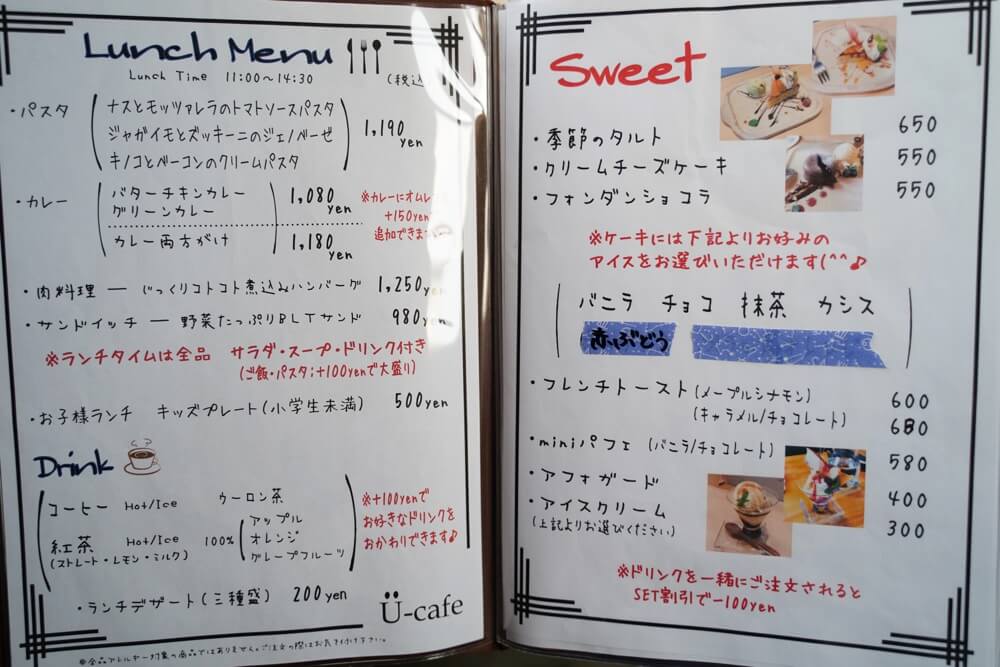 Lunch Menu
Lunch Time 11:00～14:30
(税込
・パスタ
ナスとモッツァレラのトマトソースパスタ
ジャガイモとズッキーニのジェノベーゼ
キノコとベーコンのクリームパスタ
1,190 yen
・カレー
バターチキンカレー
グリーンカレー
1,080 yen
カレー両方がけ
1,180 yen
※カレーにオムレ
+150yen
追加できま
・肉料理 ー じっくりコトコト煮込みハンバーグ 1,250 yen
・サンドイッチ ー 野菜たっぷりBLTサンド 980 yen
※ランチタイムは全品 サラダ・スープ・ドリンク付き
(ご飯・パスタ;+100yenで大盛り)
・お子様ランチ キッズプレート(小学生未満) 500yen
Drink
コーヒー Hot/Ice
紅茶 Hot/Ice
(ストレート・レモン・ミルク)
ウーロン茶
100%
アップル
オレンジ
グレープフルーツ
※+100yenで
お好きなドリンクを
おかわりできます♪
・ランチデザート(三種盛) 200yen
Ü-cafe
※全品アレルギー対象の商品ではありません。ご注文の際はお気を付け下さい。
Sweet
・季節のタルト 650
・クリームチーズケーキ 550
・フォンダンショコラ 550
※ケーキには下記よりお好みの
アイスをお選びいただけます(^^♪
バニラ チョコ 抹茶 カシス
赤ぶどう
・フレンチトースト(メープルシナモン) 600
(キャラメル/チョコレート) 680
・miniパフェ(バニラ/チョコレート) 580
・アフォガード 400
・アイスクリーム 300
(上記よりお選びください)
※ドリンクを一緒にご注文されると
SET割引で-100yen